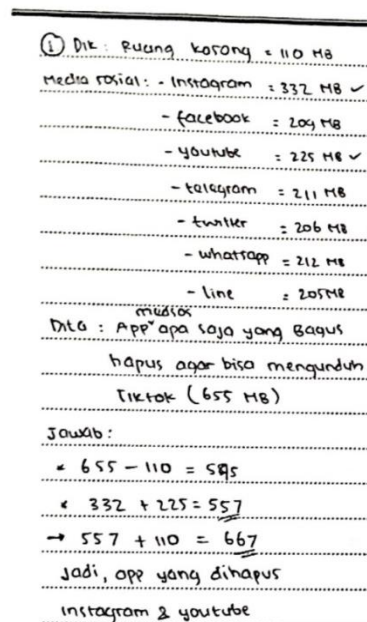 ① Dik : Ruang kosong = 110 MB
Media sosial : - Instagram = 332 MB ✓
- facebook = 209 MB
- youtube = 225 MB ✓
- telegram = 211 MB
- twitter = 206 MB
- whatsapp = 212 MB
- line = 205 MB
Dita : App medsos apa saja yang Bagus
hapus agar bisa mengunduh
TikTok (655 MB)
Jawab :
* 655 - 110 = 545
* 332 + 225 = 557
→ 557 + 110 = 667
Jadi, app yang dihapus
instagram & youtube